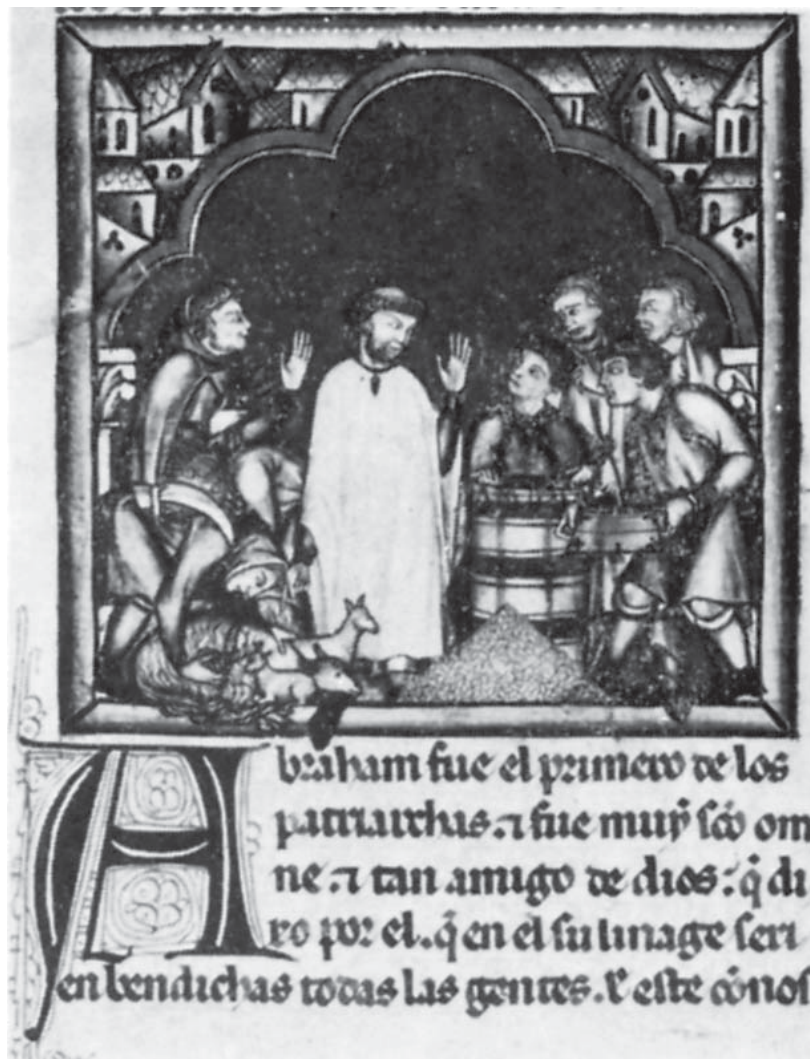 Abraham fue el primero de los
patriarchas. ⁊ fue muẏ sc̃o om
ne. ⁊ tan amigo de dios: q̃ di
xo por el. q̃ en el su linage seri
en bendichas todas las gentes. E este cõnos